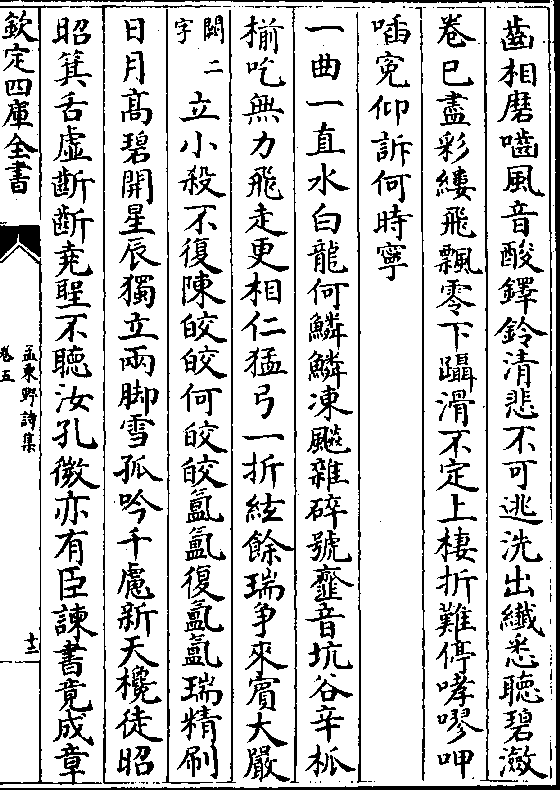 齒相磨嚙風音酸鐸鈴清悲不可逃洗出纎悉聽碧瀲
卷已盡彩縷飛飄零下躡滑不定上棲折難停哮嘐呷
㗀寃仰訴何時寧
一曲一直水白龍何鱗鱗凍飈雜碎號虀音坑谷辛柧
椾吃無力飛走更相仁猛弓一折絃餘瑞争來賓大嚴
闕二字立小殺不復陳皎皎何皎皎氳氳復氳氳瑞精刷
日月高碧開星辰獨立兩脚雪孤吟千慮新天欃徒昭
昭箕舌虛斷斷堯聖不聽汝孔微亦有臣諫書竟成章
欽定四庫全書
孟東野詩集
卷五
十三